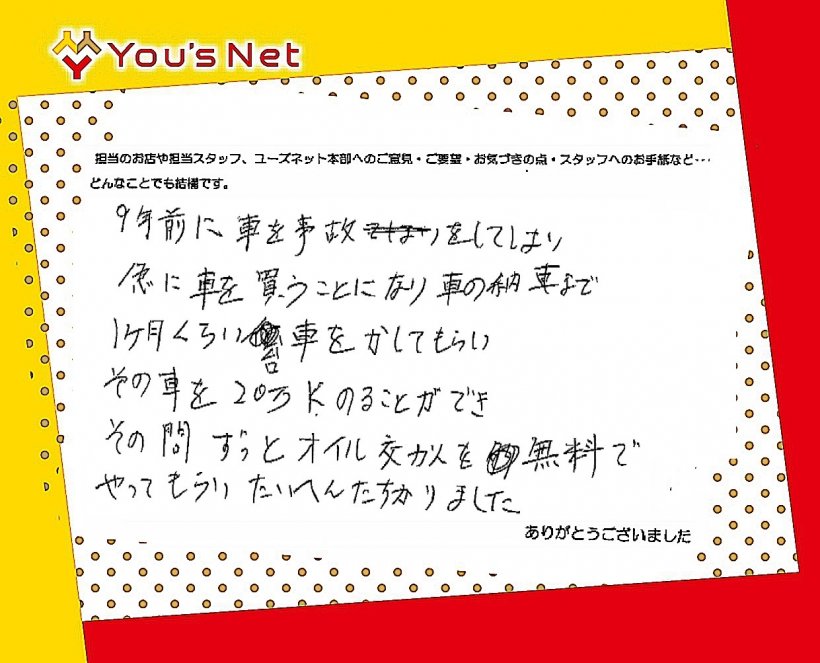 You's Net
担当のお店や担当スタッフ、ユーズネット本部へのご意見・ご要望・お気づきの点・スタッフへのお手紙など…
どんなことでも結構です。
9年前に、車を事故をしてしまい
急に車を買うことになり車の納車まで
1ヶ月くらい台車をかしてもらい
その車を20万Kのることができ
その間ずっとオイル交かんを無料で
やってもらいたいへんたすかりました
ありがとうございました